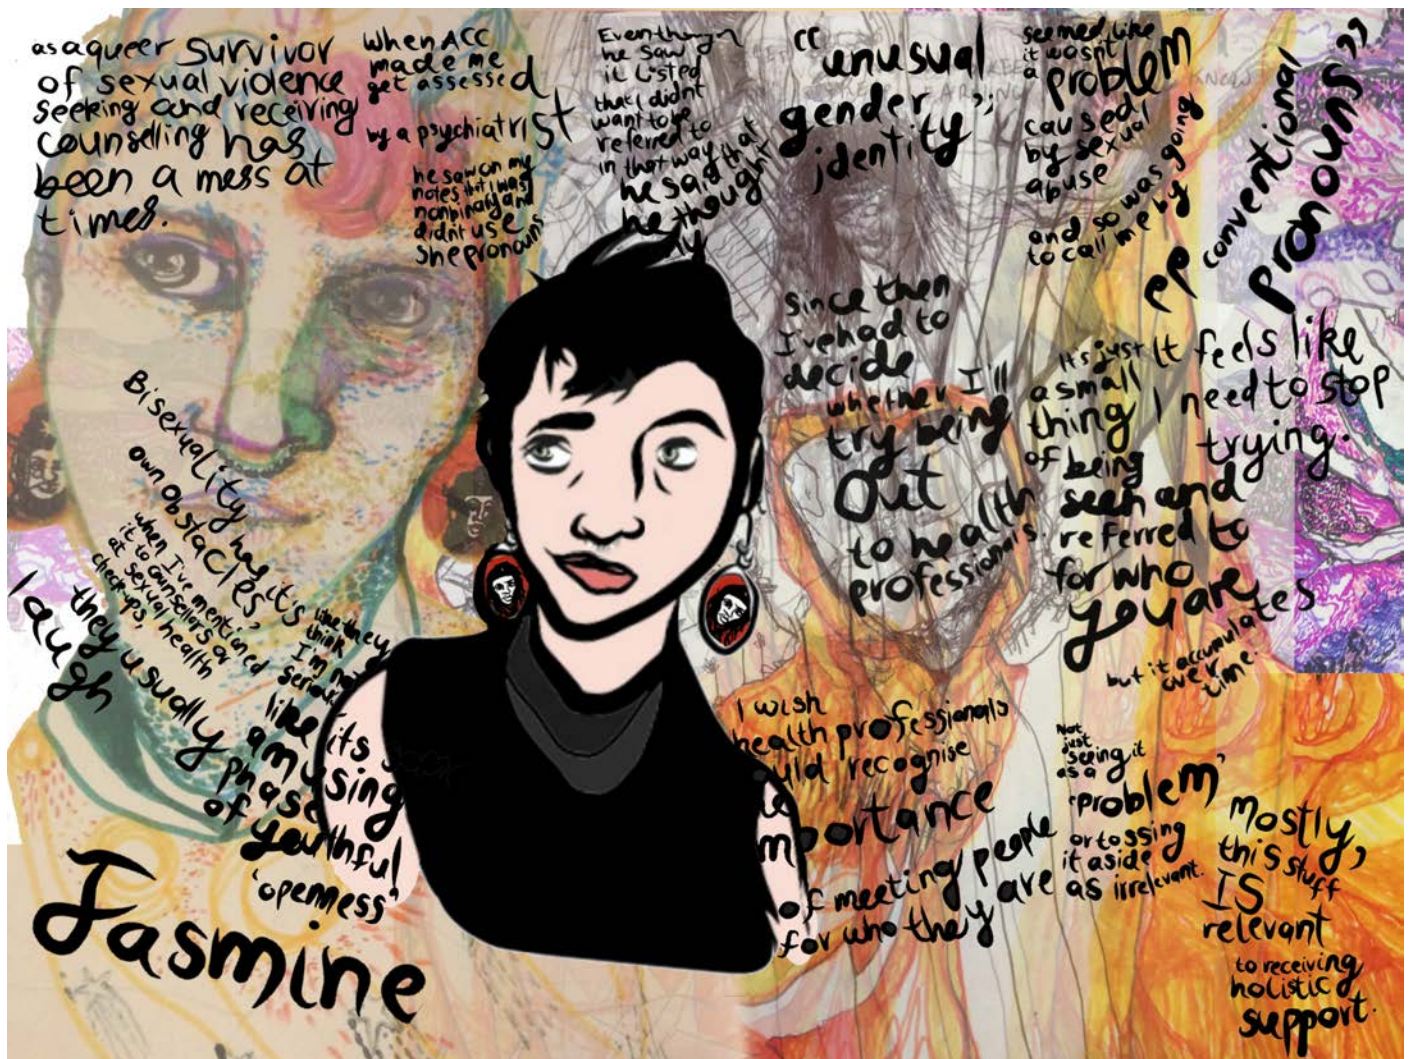 as a queer survivor
of sexual violence
seeking and receiving
counselling has
been a mess at
times.
when ACC
made me
get assessed
by a psychiatrist
he saw on my
notes that I was
nonbinary and
didnt use
she pronouns
Even though
he saw
it listed
that I didnt
want to be
referred to
in that way
he said that
he thought
my
"unusual
gender
identity"
seemed like
it wasnt
a problem
caused
by sexual
abuse
and so was going
to call me by
"conventional
pronouns"
Since then
I've had to
decide
whether I'll
try being
Out
to health
professionals.
It's just
a small
thing
of being
seen and
referred to
for who
you are
but it accumulates
over
time.
It feels like
I need to stop
trying.
Bisexuality has it's
own obstacles,
when I've mentioned
it to counsellors or
at sexual health
check-ups,
they usually
laugh
like they
think
I'm not
serious
like its
amusing
phase
of youthful
'openness'
I wish
health professionals
recognise
of meeting people
for who they are
Not
just
seeing it
as a
'problem'
or tossing
it aside
as irrelevant.
Mostly,
this stuff
IS
relevant
to receiving
holistic
support.
Jasmine